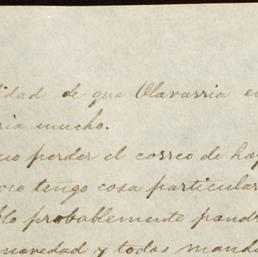 idad de que Olavarria e
ria mucho.
no perder el correo de hoy
ro tengo cosa particular
lo probablemente
novedad y todos mand